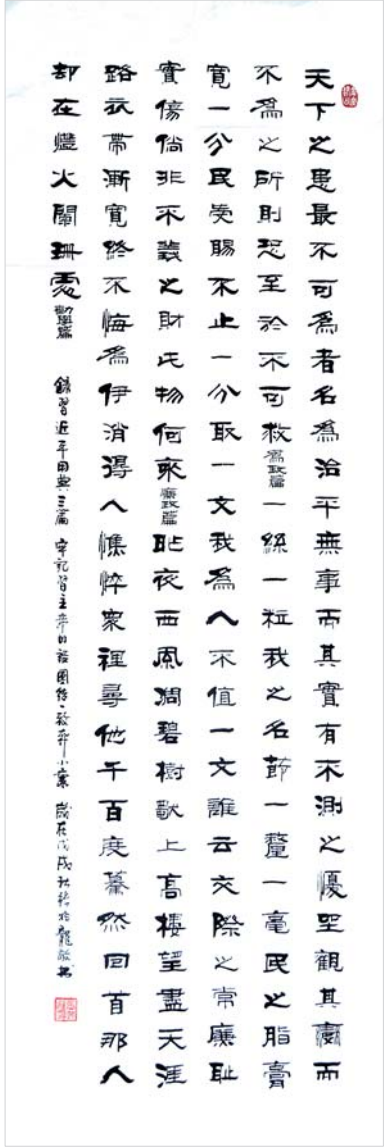 天下之患最不可為者名為治平無事而其實有不測之憂坐觀其變而
不為之所則恐至於不可救為政篇一絲一粒我之名節一釐一毫民之脂膏
寬一分民受賜不止一分取一文我為人不值一文誰云交際之常廉恥
實傷倘非不義之財此物何來廉政篇昨夜西風凋碧樹獨上高樓望盡天涯
路衣帶漸寬終不悔為伊消得人憔悴衆裡尋他千百度驀然回首那人
却在燈火闌珊處勸學篇
錄習近平用典三篇 牢記習主席的話團結一致奔小康 歲在戊戌秋